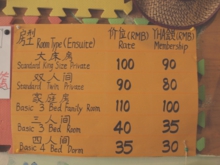 价位(RMB)
Room Type (Ensuite) Rate Membership
大床房
Standard King Size Private 100 90
双人间
Standard Twins Private 90 80
家庭房
Basic 3 Bed Family Room 110 100
三人间
Basic 3 Bed Room 40 35
四人间
Basic 4 Bed Dorm 35 30